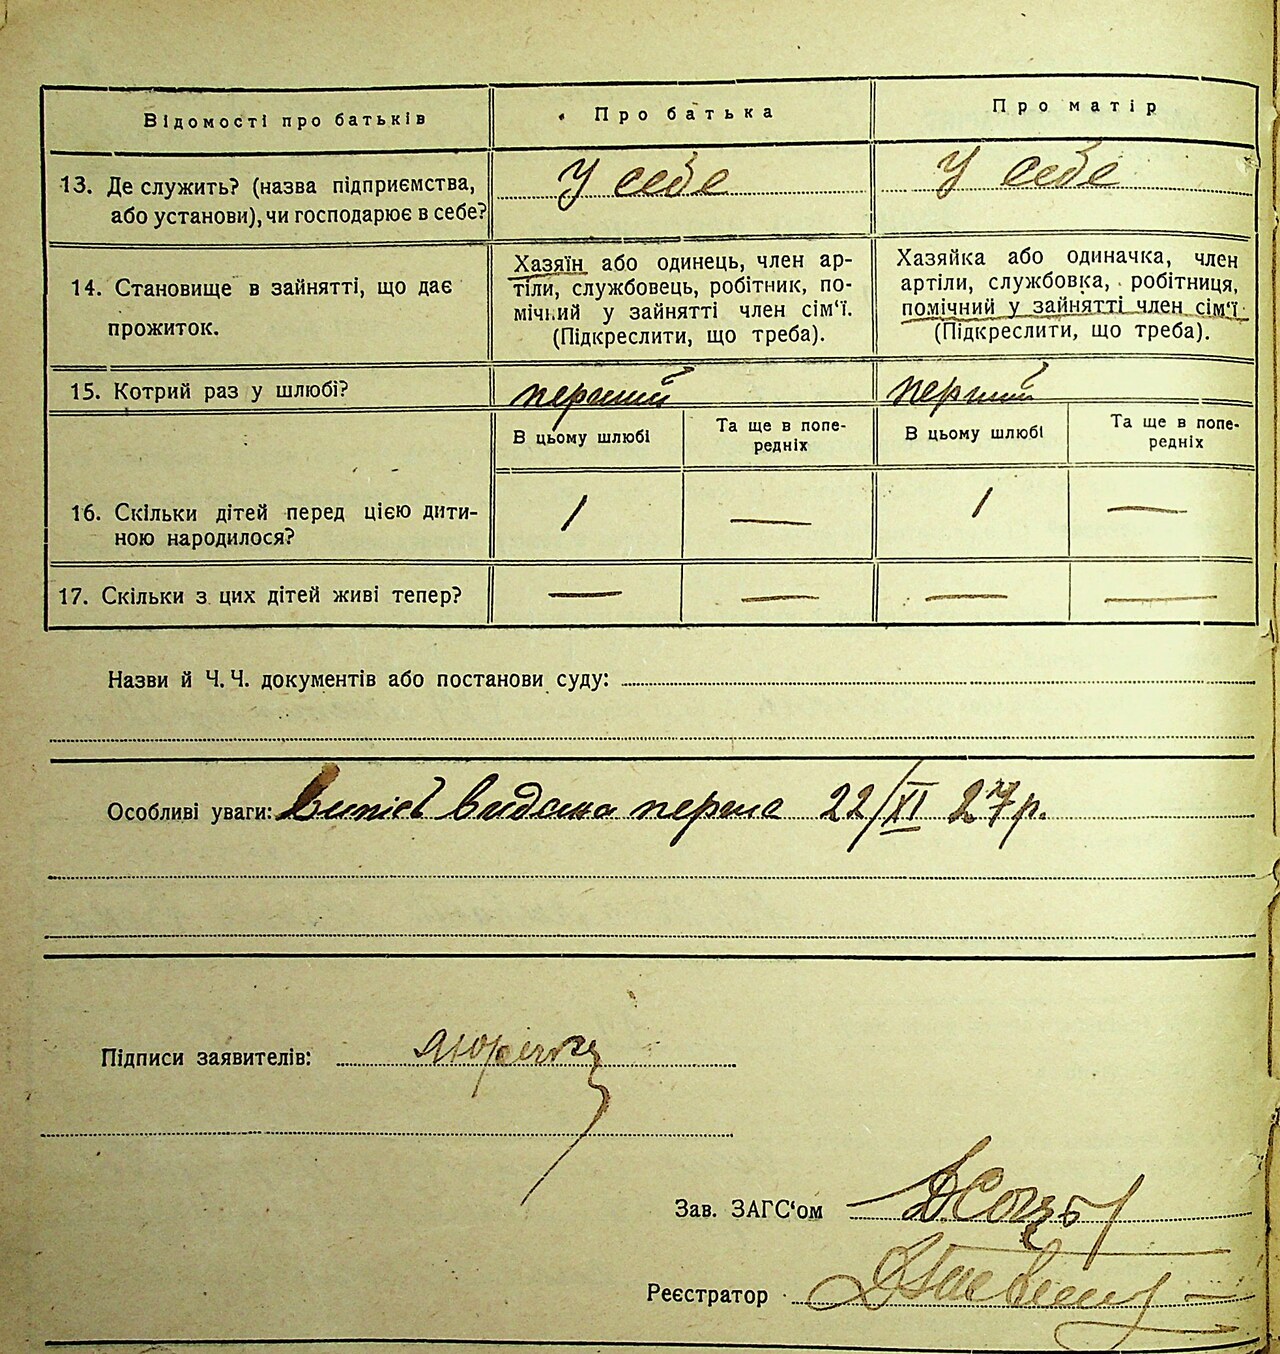 Відомості про батьків
Про батька
Про матір
13. Де служить? (назва підприємства,
або установи), чи господарює в себе?
У себе
У себе
14. Становище в зайнятті, що дає
прожиток.
Хазяїн або одинець, член ар-
тіли, службовець, робітник, по-
мічний у зайнятті член сім‘ї.
(Підкреслити, що треба).
Хазяйка або одиначка, член
артіли, службовка, робітниця,
помічний у зайнятті член сім‘ї
(Підкреслити, що треба).
15. Котрий раз у шлюбі?
перший
перший
В цьому шлюбі
Та ще в попе-
редніх
В цьому шлюбі
Та ще в попе-
редніх
16. Скільки дітей перед цією дити-
ною народилося?
1
—
1
—
17. Скільки з цих дітей живі тепер?
—
—
—
—
Назви й Ч. Ч. документів або постанови суду:
Особливі уваги: видана перша 22/XI 27р.
Підписи заявителів:
Зав. ЗАГС‘ом
Реєстратор